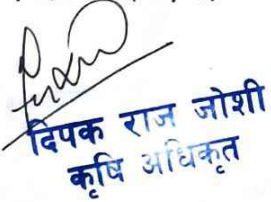 दिपक राज जोशी
कृषि अधिकृत